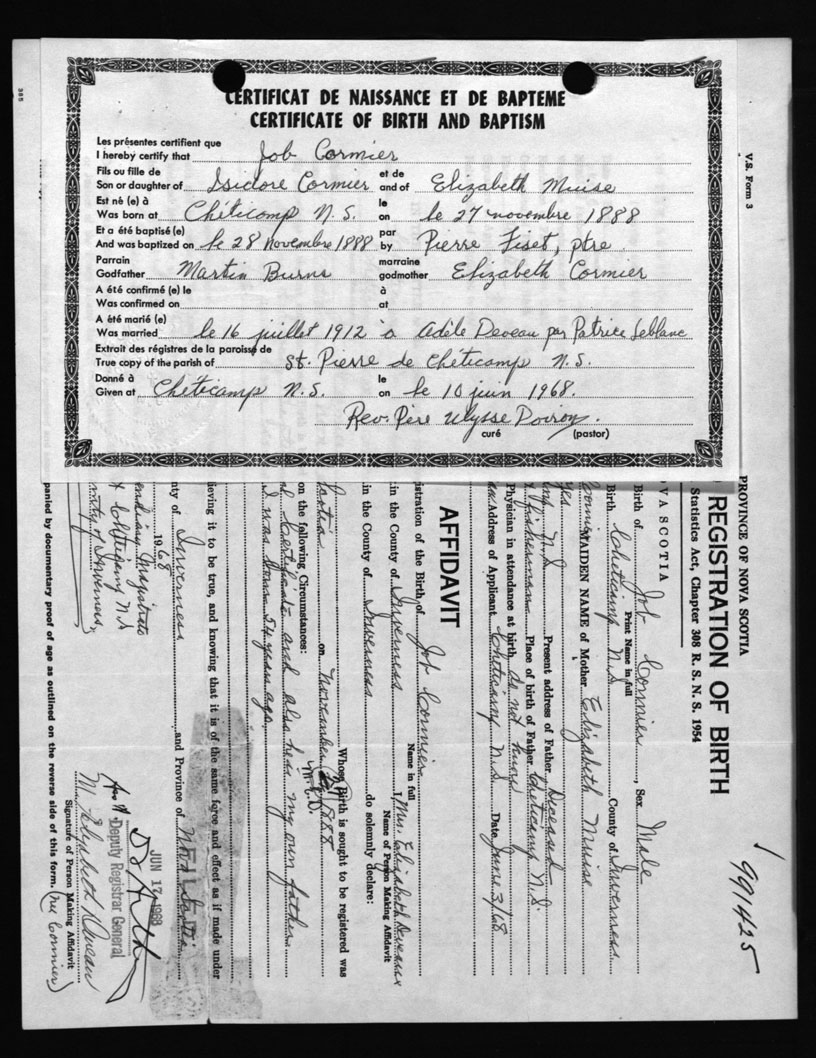 CERTIFICAT DE NAISSANCE ET DE BAPTEME
CERTIFICATE OF BIRTH AND BAPTISM
Les présentes certifient que
I hereby certify that Job Cormier
Fils ou fille de et de
Son or daughter of Isidore Cormier and of Elizabeth Muise
Est né (e) à le
Was born at Chéticamp N.S. on le 27 novembre 1888
Et a été baptisé (e) par
And was baptized on le 28 Novembre 1888 by Pierre Fiset, ptre
Parrain marraine
Godfather Martin Burns godmother Elizabeth Cormier
A été confirmé (e) le à
Was confirmed on at
A été marié (e)
Was married le 16 juillet 1912 à Adèle Deveau par Patrice Leblanc
Extrait des régistres de la paroisse de
True copy of the parish of St. Pierre de Chéticamp N.S.
Donné à le
Given at Chéticamp N.S. on le 10 juin 1968.
Rev. Père Ulysse Poirier.
curé (pastor)
385
V.S. Form 3
PROVINCE OF NOVA SCOTIA
REGISTRATION OF BIRTH
Statistics Act, Chapter 308 R. S. N. S. 1954
991425
OVA SCOTIA
Birth of Job Cormier, Sex Male
Print Name in full
Birth Cheticamp N.S. County of Inverness
MAIDEN NAME of Mother Elizabeth Muise
yes
Present address of Father Deceased
Fisherman Place of birth of Father Cheticamp N.S.
Physician in attendance at birth do not know
Address of Applicant Cheticamp N.S. Date June 3/68
AFFIDAVIT
stration of the Birth of Job Cormier
Name in full
I Mrs. Elizabeth Deveau
Name of Person Making Affidavit
in the County of Inverness
in the County of Inverness do solemnly declare:
Whose Birth is sought to be registered was
Scotia on November 1888
M.E.D.
on the following Circumstances:
Certificate and also he is my own father
I was born 54 years ago
ieving it to be true, and knowing that it is of the same force and effect as if made under
nty of Inverness and Province of Nova Scotia
1968
endiary Magistrate
Cheticamp N.S
nty of Inverness
JUN 17 1968
Deputy Registrar General
M. Elizabeth Deveau
(née Cormier)
Signature of Person Making Affidavit
panied by documentary proof of age as outlined on the reverse side of this form.